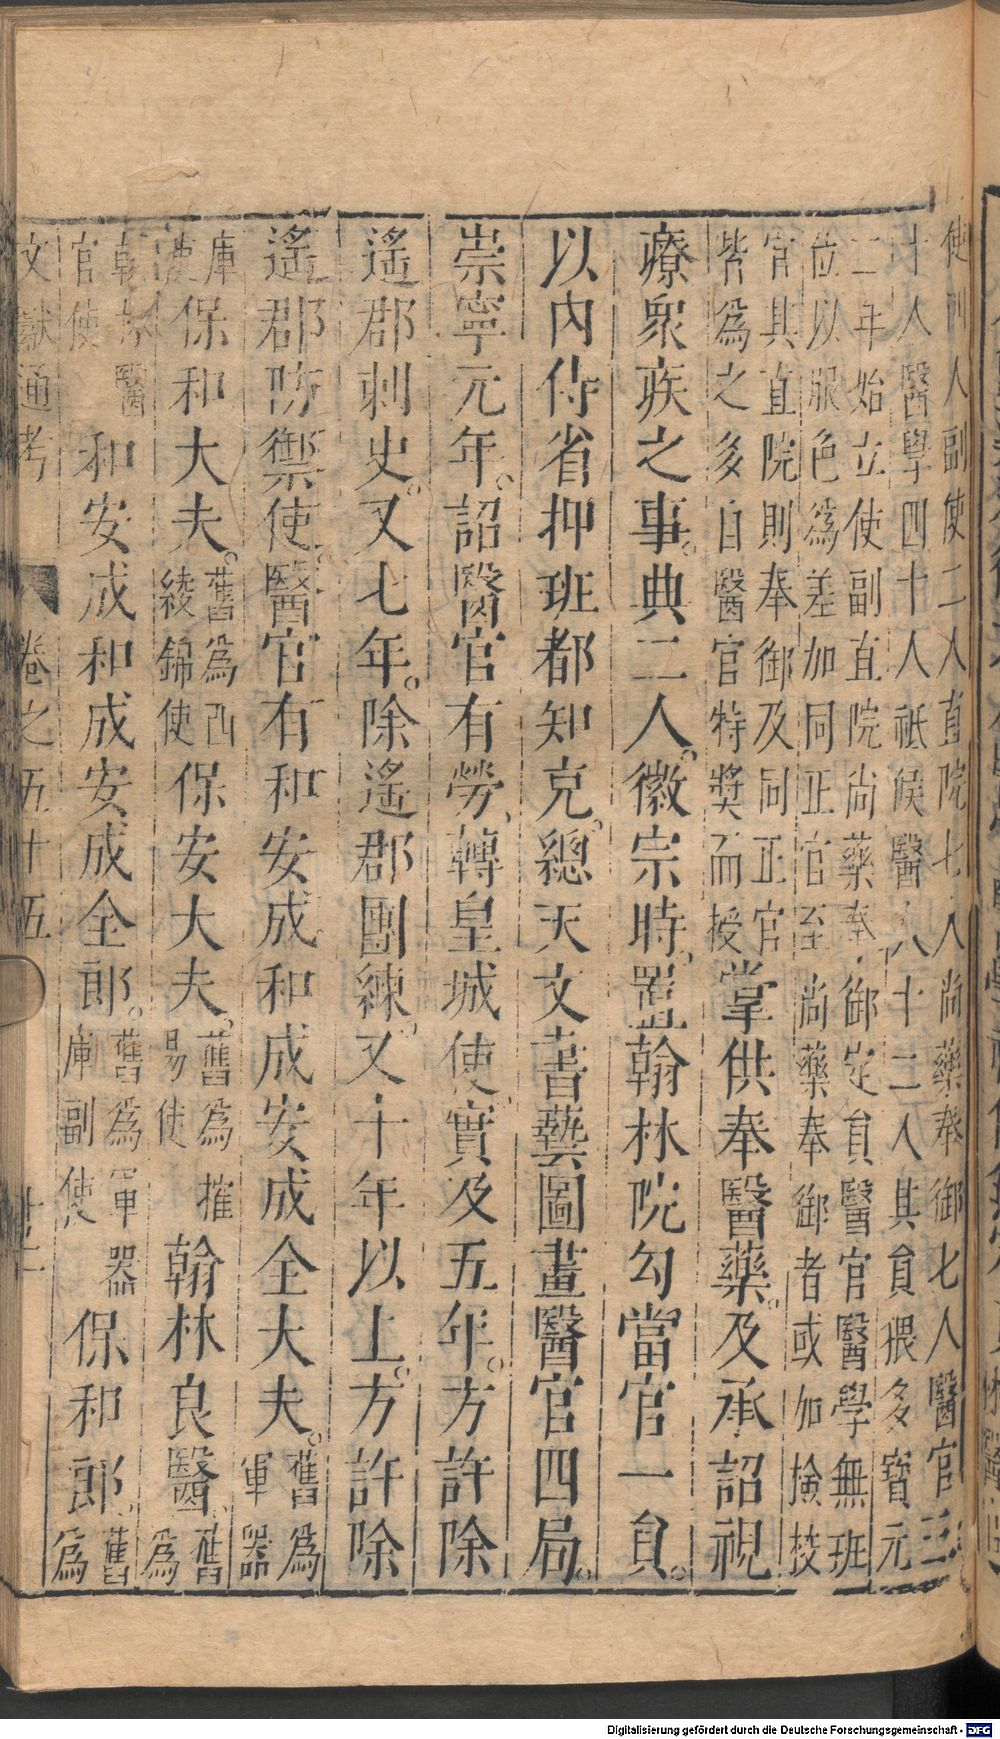 使副人副使二人直院七人尚藥奉御七人醫官三
十人醫學四十人祇候醫人十二人其員猥多寳元
二年始立使副直院尚藥奉御定員醫官醫學無班
位以服色為差加同正官至尚藥奉御者或加檢校
官其直院則奉御及同正官
皆為之多自醫官特奬而授
掌供奉醫藥。及承詔視
療衆疾之事。典二人。徽宗時、置翰林院勾當官一員。
以内侍省抑班都知克。總天文書藝圖畫醫官四局。
崇寧元年。詔醫官有勞、轉皇城使、實及五年。方許除
遙郡刺史。又七年。除遙郡團練。又十年以上。方許除
遙郡防禦使。醫官有和安成和成安成全大夫。舊為
軍器
庫
使
保和大夫。舊為西
綾錦使
保安大夫。舊為搉
易使
翰林良醫、舊
為
翰林醫
官使
和安成和成安成全郎。舊為軍器
庫副使
保和郎、舊
為
文獻通考
卷之五十五
Digitalisierung gefördert durch die Deutsche Forschungsgemeinschaft - DFG